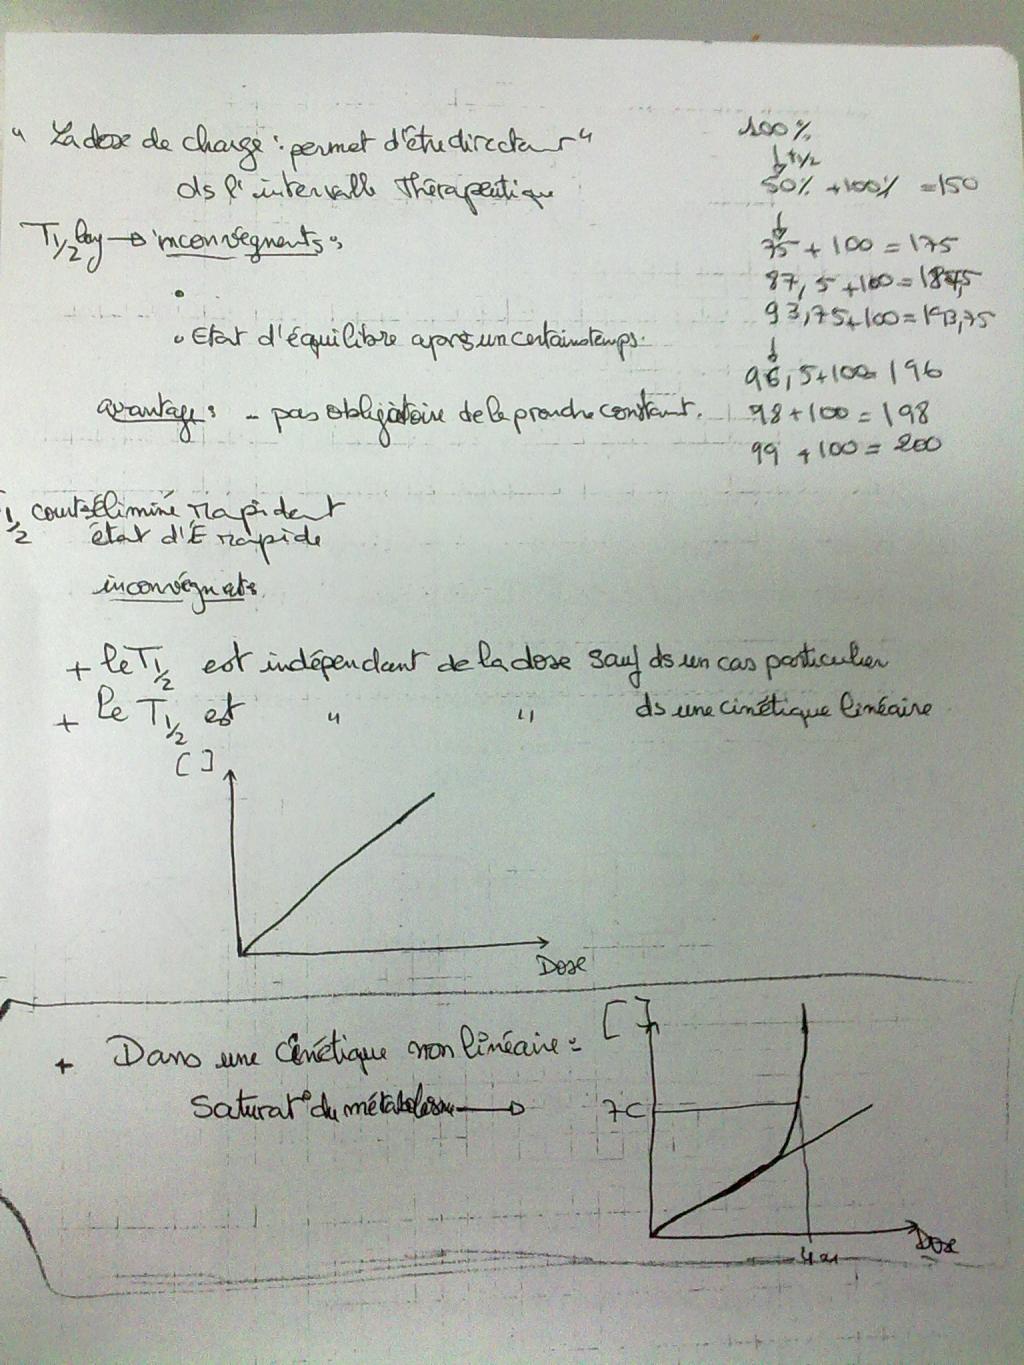 " La dose de charge : permet d'être directemt "
ds l'intervalle Thérapeutique
T1/2 long → inconvégnents :
• Etat d'équilibre après un certains temps.
avantage : - pas obligatoire de le prendre constamt.
100%
↓ t1/2
50% +100% =150
↓
75 + 100 = 175
87,5 +100 = 187,5
93,75+100=193,75
↓
96,5+100= 196
98+100 = 198
99 +100 = 200
1/2 court : éliminé rapidemt
état d'E rapide
inconvégnats
+ le T1/2 est indépendant de la dose sauf ds un cas particulier
+ le T1/2 est " " ds une cinétique linéaire
[ ]
Dose
+ Dans une Cinétique non linéaire :
Saturat° du métabolisme →
[ ]
7C
Dose